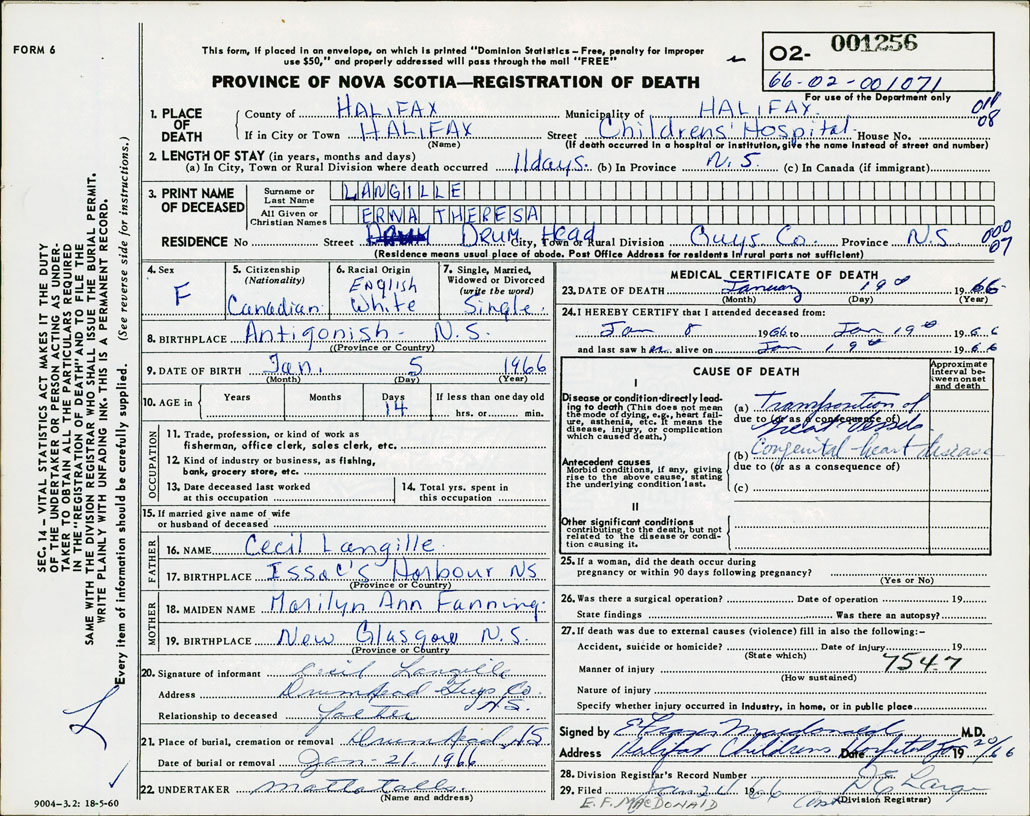 FORM 6
This form, if placed in an envelope, on which is printed "Dominion Statistics – Free, penalty for improper
use $50," and properly addressed will pass through the mail "FREE"
PROVINCE OF NOVA SCOTIA—REGISTRATION OF DEATH
02- 001256
66-02-001071
For use of the Department only
SEC. 14 – VITAL STATISTICS ACT MAKES IT THE DUTY
OF THE UNDERTAKER OR PERSON ACTING AS UNDER-
TAKER TO OBTAIN ALL THE PARTICULARS REQUIRED
IN THE "REGISTRATION OF DEATH" AND TO FILE THE
SAME WITH THE DIVISION REGISTRAR WHO SHALL ISSUE THE BURIAL PERMIT.
WRITE PLAINLY WITH UNFADING INK. THIS IS A PERMANENT RECORD.
Every item of information should be carefully supplied. (See reverse side for instructions.)
1. PLACE OF DEATH
County of HALIFAX Municipality of HALIFAX
If in City or Town HALIFAX Street Childrens' Hospital House No. 08
(Name) (If death occurred in a hospital or institution, give the name instead of street and number)
2. LENGTH OF STAY (in years, months and days)
(a) In City, Town or Rural Division where death occurred 11 days. (b) In Province N.S. (c) In Canada (if immigrant)
3. PRINT NAME OF DECEASED
Surname or Last Name LANGILLE
All Given or Christian Names ERNA THERESA
RESIDENCE No Street DRUM Head City, Town or Rural Division Guys Co. Province N.S 07
(Residence means usual place of abode. Post Office Address for residents in rural parts not sufficient)
4. Sex F
5. Citizenship (Nationality) Canadian
6. Racial Origin ENglish White
7. Single, Married, Widowed or Divorced (write the word) Single.
8. BIRTHPLACE Antigonish - N.S.
(Province or Country)
9. DATE OF BIRTH Jan. 5 1966
(Month) (Day) (Year)
10. AGE in Years Months Days 14 If less than one day old hrs. or min.
OCCUPATION
11. Trade, profession, or kind of work as
fisherman, office clerk, sales clerk, etc.
12. Kind of industry or business, as fishing,
bank, grocery store, etc.
13. Date deceased last worked
at this occupation
14. Total yrs. spent in
this occupation
15. If married give name of wife
or husband of deceased
FATHER
16. NAME Cecil Langille
17. BIRTHPLACE Issac's Harbour NS
(Province or Country)
MOTHER
18. MAIDEN NAME Marilyn Ann Fanning.
19. BIRTHPLACE New Glasgow N.S.
(Province or Country)
20. Signature of informant Cecil Langille
Address Drumhead Guys Co. N.S.
Relationship to deceased father
21. Place of burial, cremation or removal Drumhead, NS
Date of burial or removal Jan-21, 1966
22. UNDERTAKER Mattatalls
(Name and address)
9004–3.2: 18-5-60
MEDICAL CERTIFICATE OF DEATH
23. DATE OF DEATH January 19 1966
(Month) (Day) (Year)
24. I HEREBY CERTIFY that I attended deceased from:
Jan 8 1966 to Jan 19 1966
and last saw her alive on Jan 19 1966
CAUSE OF DEATH
Approximate interval between onset and death
I
Disease or condition directly lead-
ing to death (This does not mean
the mode of dying, e.g., heart fail-
ure, asthenia, etc. It means the
disease, injury, or complication
which caused death.)
(a) Transposition of
due to (or as a consequence of)
great vessels
Antecedent causes
Morbid conditions, if any, giving
rise to the above cause, stating
the underlying condition last.
(b) Congenital heart disease
due to (or as a consequence of)
(c)
II
Other significant conditions
contributing to the death, but not
related to the disease or condi-
tion causing it.
25. If a woman, did the death occur during
pregnancy or within 90 days following pregnancy?
(Yes or No)
26. Was there a surgical operation? Date of operation 19
State findings Was there an autopsy?
27. If death was due to external causes (violence) fill in also the following:–
Accident, suicide or homicide? Date of injury 19
(State which)
7547
Manner of injury
(How sustained)
Nature of injury
Specify whether injury occurred in industry, in home, or in public place
Signed by Macdonald M.D.
Address Halifax Childrens Hospital Date Jan 20/66 19
28. Division Registrar's Record Number
29. Filed Jan 1966
(Division Registrar)
E.F. MACDONALD